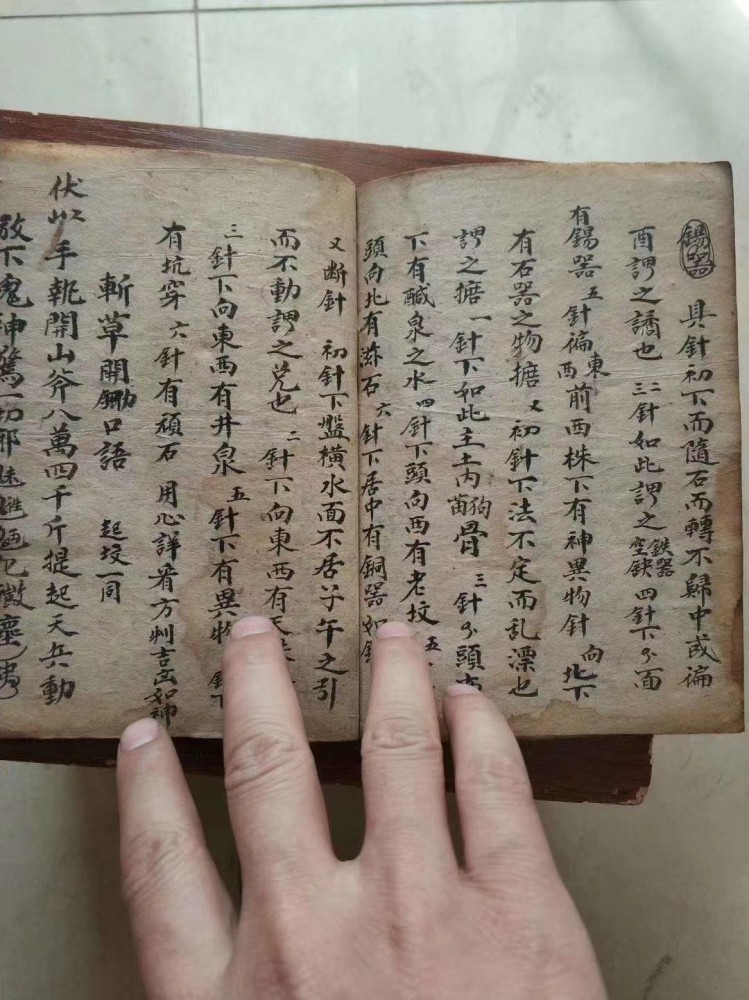 錫器 具針初下而隨石而轉不歸中或徧
酉謂之譎也 二三針如此謂之鉄器空缺四針下
面
有錫器 五針徧東西前西株下有神異物針向北下
有石器之物搪 又初針下法不定而乱漂也
謂之搪 一針下如此主土内狗骨 三針 頭
下有鹹泉之水 四針下頭向西有老坟 五
頭向北有滋石 六針下居中有銅器如
又断針 初針下盤橫水面不居子午之引
而不動謂之兑也 二針下向東西有
三針下向東西有井泉 五針下有異物
有坑穿 六針有頑石 用心詳看方判吉凶如神
斬草開鋤口語 起坟一同
伏以手執開山斧八萬四千斤提起天兵動
放下鬼神驚一切邪